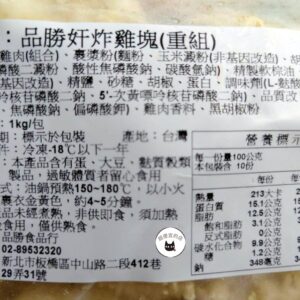 ：品勝好炸雞塊(重組)
雞肉(組合)、裹漿粉(麵粉、玉米澱粉(非基因改造)、胡
酸二澱粉、酸性焦磷酸鈉、碳酸氫鈉)、精製軟棕油
基因改造)、精鹽、砂糖、胡椒、蛋白、調味劑(L-麩酸
苷核苷磷酸二鈉、5'-次黃嘌呤核苷磷酸二鈉)、品質改
焦磷酸鈉、偏磷酸鉀)、雞肉香料、黑胡椒粉
：1kg/包
期：標示於包裝 產地：台灣
件：冷凍-18℃以下一年
：本產品含有蛋、大豆、麩質穀類
製品，過敏體質者留心食用
式：油鍋預熱150~180℃，以小火
裹衣金黃色，約4~5分鐘
品未經煮熟，非供即食，須加熱
食用，僅供熟食。
司品勝食品行
02-89532320
新北市板橋區中山路二段412巷
29弄31號
營養標示
每一份量100公克
本包裝含 10份
每
熱量 213大卡
蛋白質 15.1公克
脂肪 12.5公克
飽和脂肪 3.1公克
反式脂肪 0公克
碳水化合物 9.9公克
糖 1.2公克
鈉 348毫克